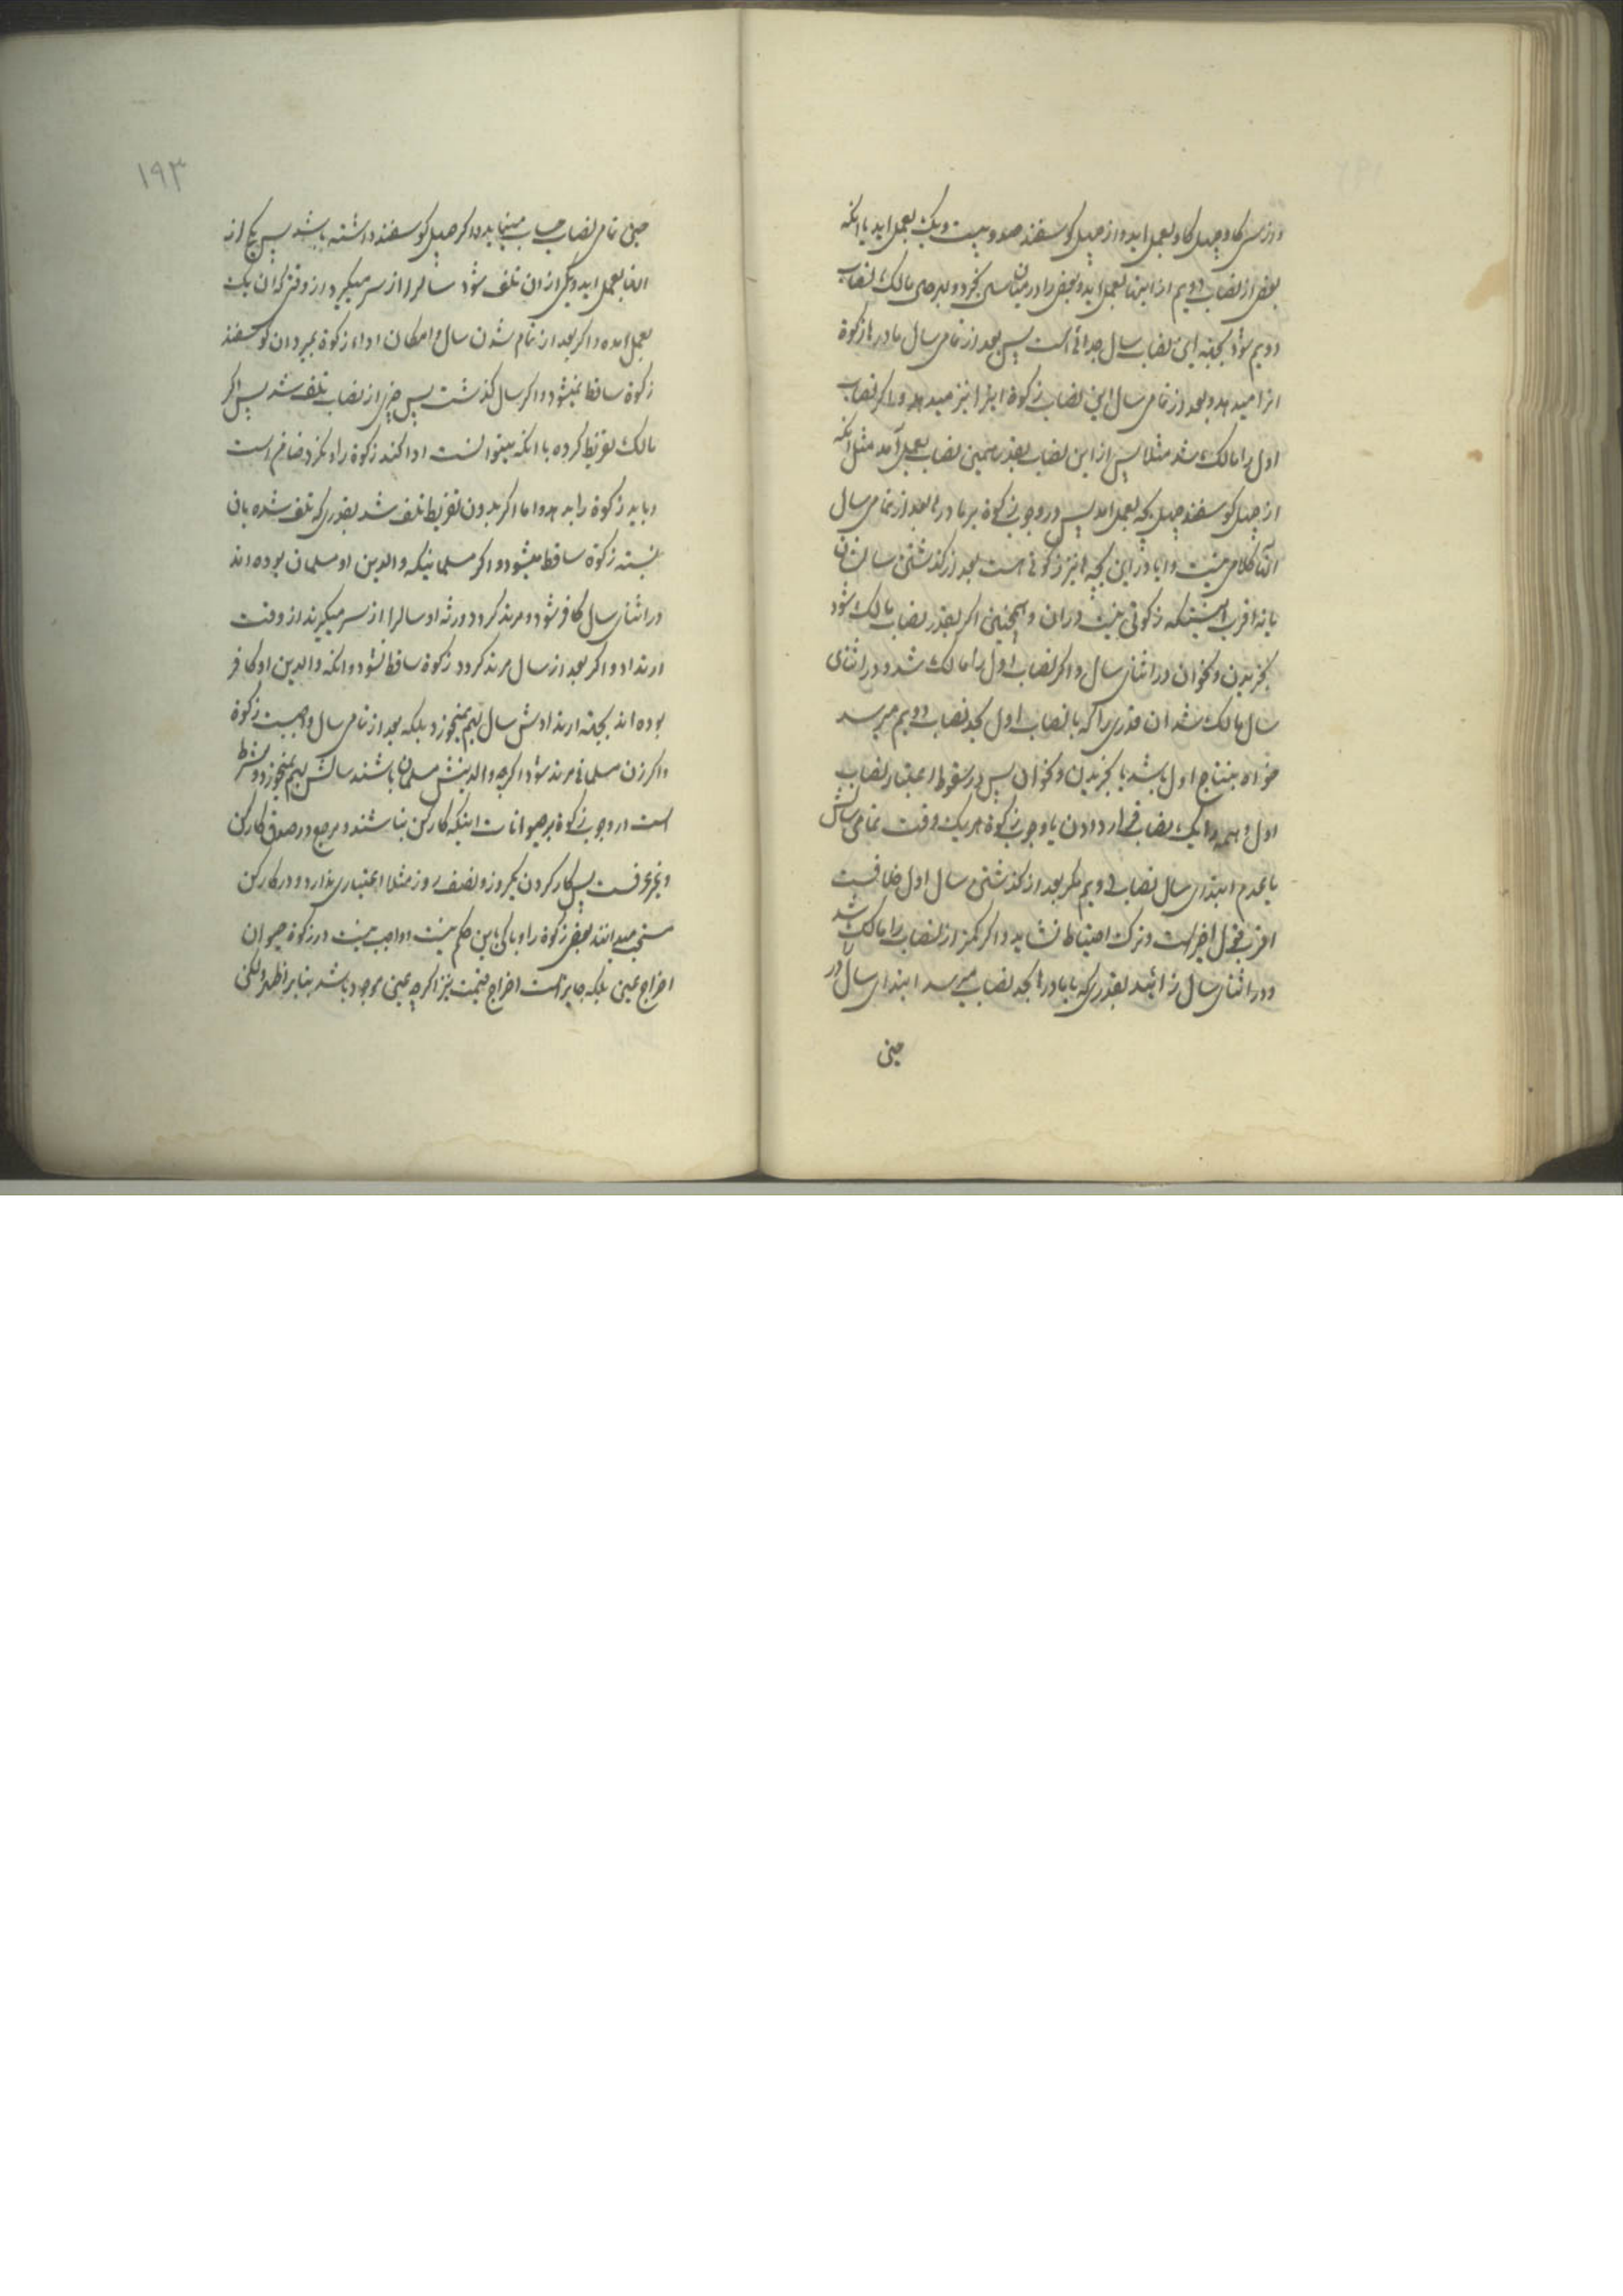 و از سی گاو چهل گاو بعمل اید و از چهل کوسفند صد و بیست و یک بعمل اید یا انکه
بعضی از نصاب دویم از اینها بعمل اید و بعضی را در میان سال بخرد و بهرجهی مالک نصاب
دویم شود بجهته این نصاب سال جدائی است پس بعد از تمامی سال مادرها زکوة
انرا میدهد و بعد از تمامی سال این نصاب زکوة اینرا نیز میدهد و اکر نصاب
اول را مالک شد مثلا پس از این نصاب بقدر همین نصاب بعمل آمد مثل انکه
از چهل کوسفند چهل بچه بعمل امد پس در وجوب زکوة بر مادرها بعد از تمامی سال
انها کلامی نیست و ایا در این بچه ها نیز زکوتی هست بعد از کذشتن سالشان
یا نه اقرب اینستکه زکوتی نیست در ان و همچنین اکر بقدر نصاب مالک شود
بخریدن و نحو ان در اثنای سال و اکر نصاب اول را مالک شد و در اثنای
سال مالک شد ان قدری را که با نصاب اول بحد نصاب دویم میرسد
خواه بنتاج اول باشد یا بخریدن و نحو ان پس در سقوط اعتبار نصاب
اول و همه را یک نصاب قرار دادن یا وجوب زکوة هر یک وقت تمامی سالش
یا عدم ابتدای سال نصاب دویم مکر بعد از کذشتن سال اول خلافیست
اقرب قول اخر است و ترک احتیاط نشاید و اکر کمتر از نصاب را مالک شد
و در اثنای سال زائید بقدری که با مادرها بحد نصاب میرسد ابتدای سال در
حین
۱۹۳
حین تمامی نصاب حساب مینماید و اکر چهل کوسفند داشته باشد پس بچ از
انها بعمل اید و یکی از ان تلف شود سالرا از سر میکیرد از وقتی که ان یک
بعمل امده و اکر بعد از تمام شدن سال و امکان اداء زکوة بمیرد ان کوسفند
زکوة ساقط نمیشود و اکر سال کذشت پس جزی از نصاب تلف شد پس اکر
مالک تفریط کرده با انکه میتوانست ادا کند زکوة را و نکرد ضامن است
و باید زکوة را بدهد و اما اکر بدون تفریط تلف شد بقدری که تلف شده بان
نسبته زکوة ساقط میشود و اکر مسلمانیکه والدین او مسلمان بوده اند
در اثنای سال کافر شود و مرتد کردد ورثه او سالرا از سر میکیرند از وقت
ارتداد و اکر بعد از سال مرتد کردد زکوة ساقط نشود و انکه والدین او کافر
بوده اند بجهته ارتدادش سال بهم نمیخورد بلکه بعد از تمامی سال واجبست زکوة
و اکر زن مسلمانی مرتد شود اکرچه والدینش مسلمان باشند سالش بهم نمیخورد و شرط
است در وجوب زکوة بر حیوانات اینکه کارکن نباشند و مرجع در صدق کارکن
و غیر عرفست پس کار کردن یکروز و نصف روز مثلا اعتباری ندارد و در کارکن
مستحب میدانند بعضی زکوة را و باکی باین حکم نیست و واجب نیست در زکوة حیوان
اخراج عین بلکه جایز است اخراج قیمت نیز اکرچه عین موجود باشد بنابر اظهر ولکن